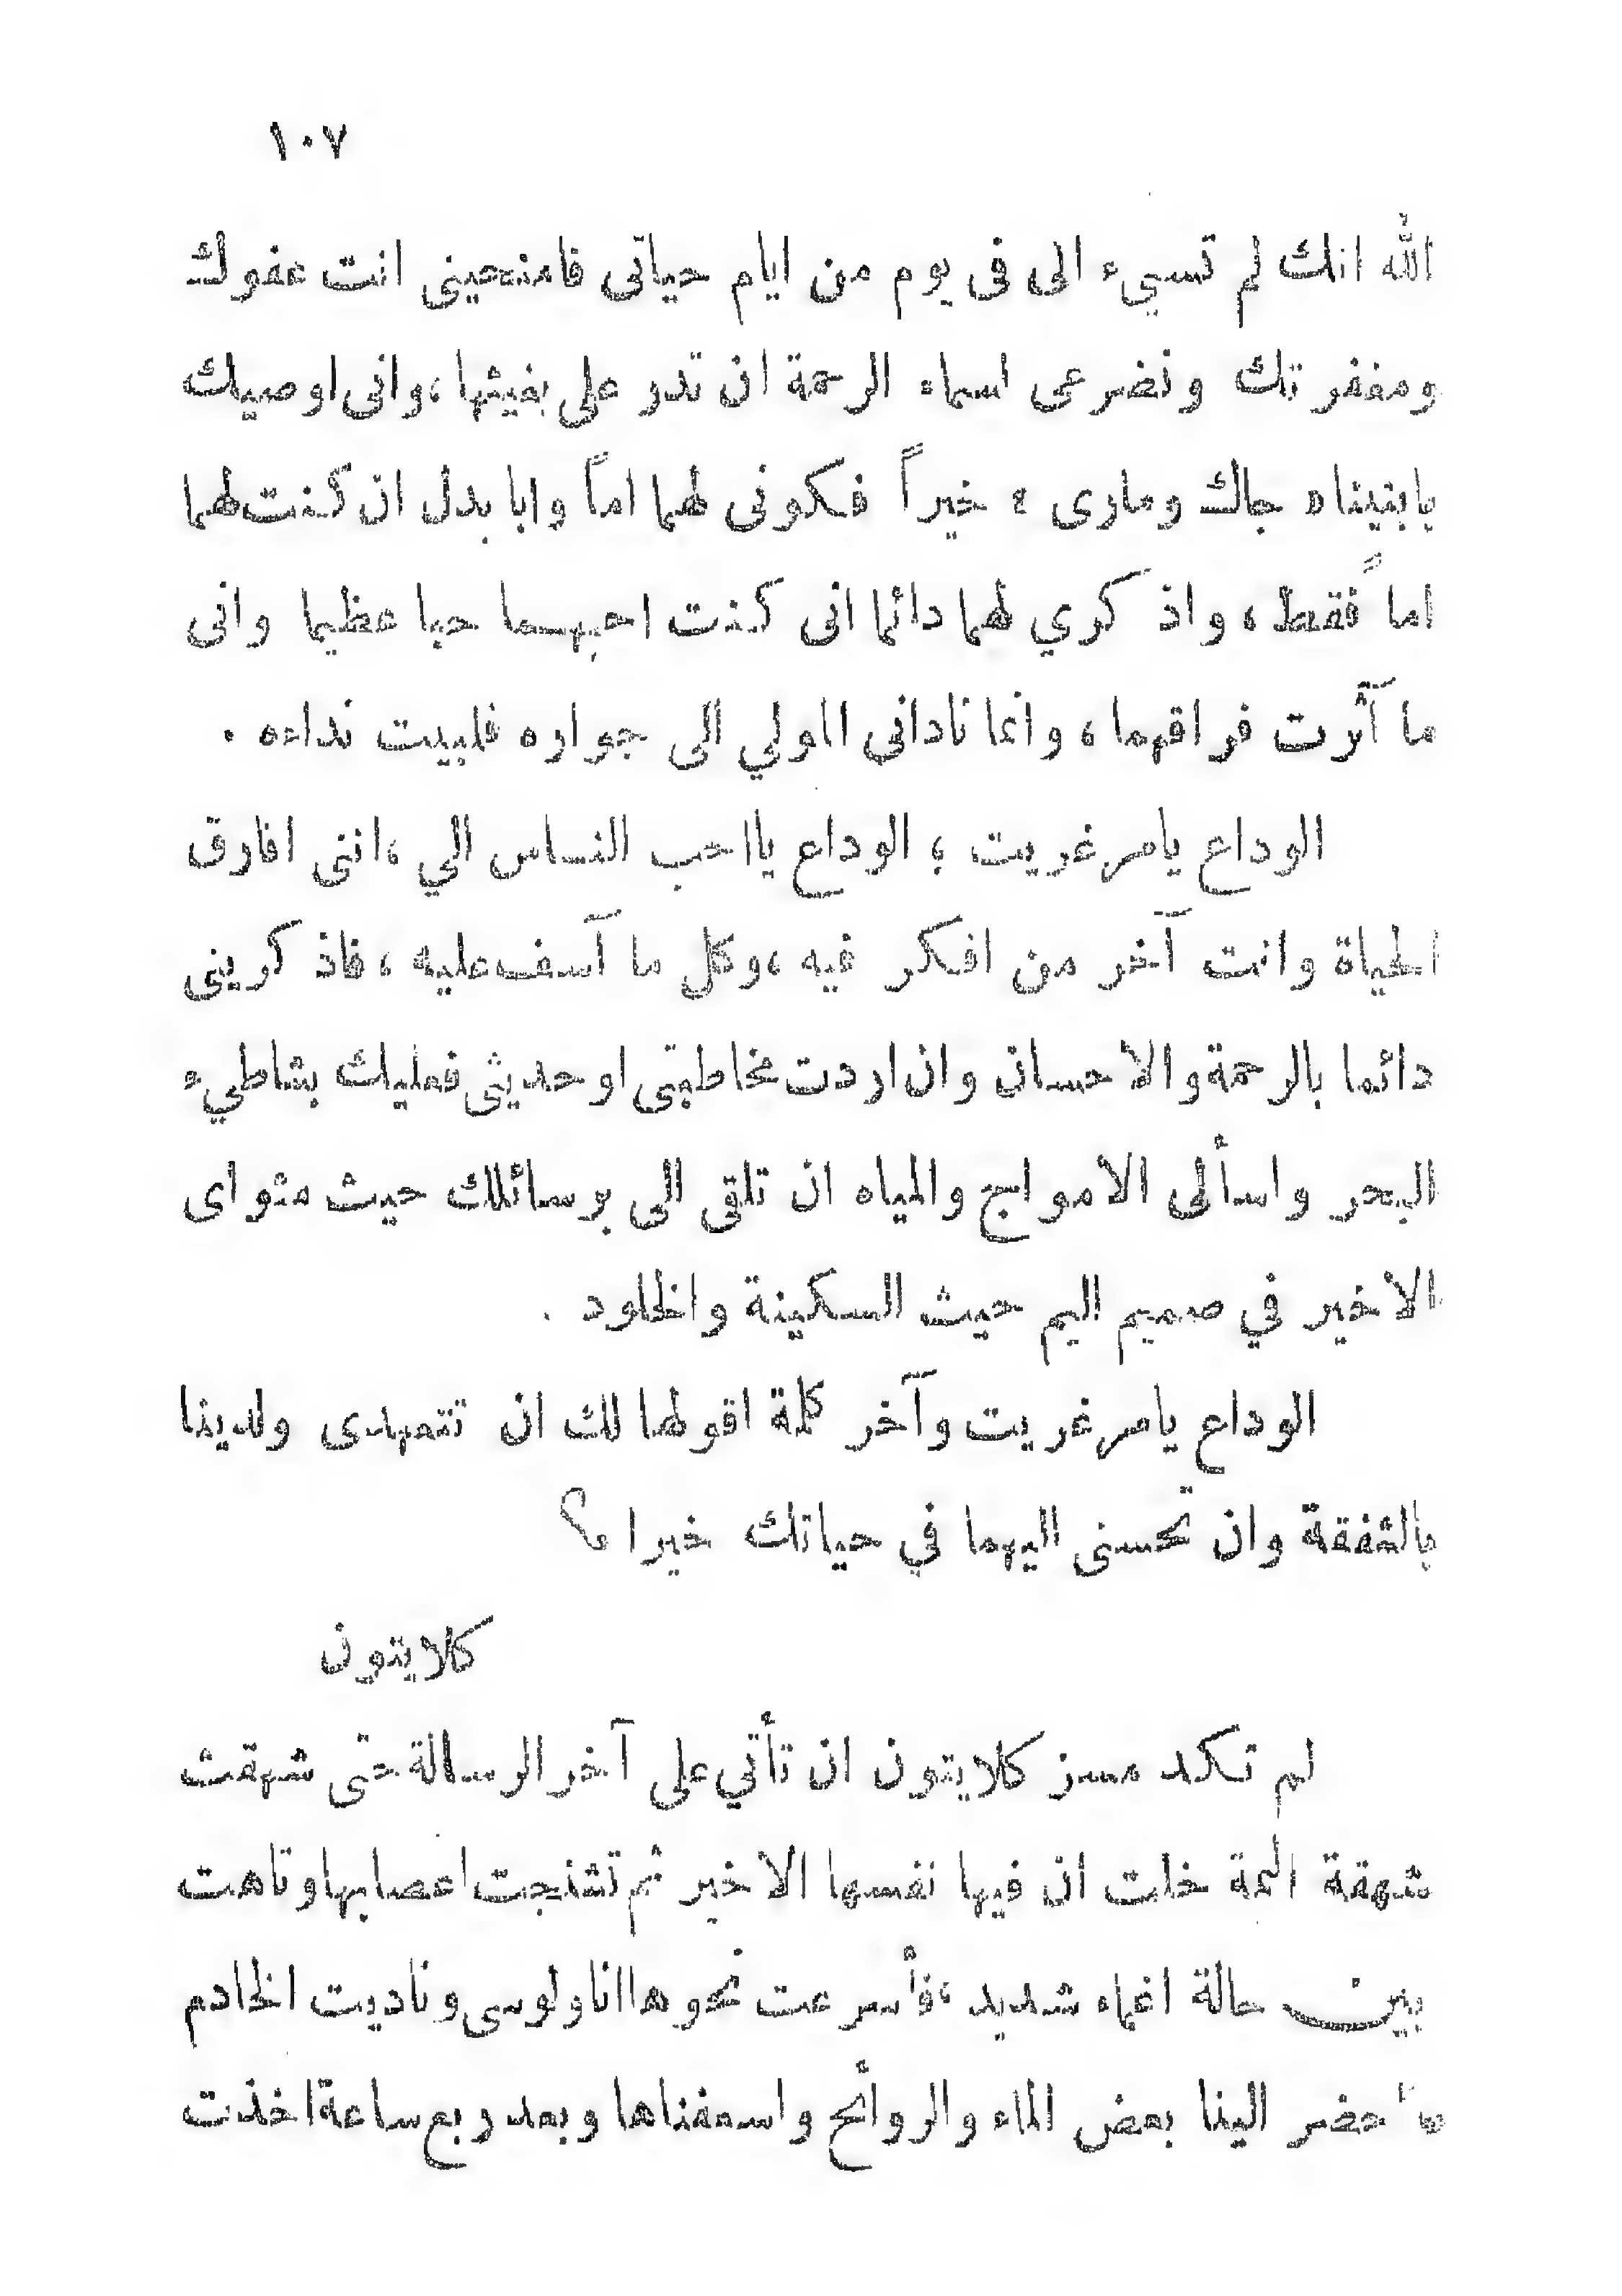 ١٠٧
الله انك لم تسيء الى فى يوم من ايام حياتى فامنحينى انت عفوك
ومغفرتك وتضرعى لسماء الرحمة ان تدر على بغيثها ، وانى اوصيك
بابنيناه جاك ومارى ه خيراً فكونى لهما اماً وابا بدل ان كنت لهما
اماً فقط ، واذكري لهما دائما انى كنت احبهما حبا عظيما وانى
ما آثرت فراقهما ، وانما نادانى المولي الى جواره فلبيت نداءه .
الوداع يامرغريت ؛ الوداع يااحب الناس الي ، اننى افارق
الحياة وانت آخر من افكر فيه ، وكل ما آسف عليه ، فاذكرينى
دائما بالرحمة والاحسان وان اردت مخاطبتى او حديثى فعليك بشاطيء
البحر واسألى الامواج والمياه ان تلقى الى برسائلك حيث مثواى
الاخير في صميم اليم حيث السكينة والخلود .
الوداع يامرغريت وآخر كلمة اقولها لك ان تتعهدى ولدينا
بالشفقة وان تحسنى اليهما في حياتك خيرا م؟
كلايتون
لم تكد مسز كلايتون ان تأتي على آخر الرسالة حتى شهقت
شهقة اليمة خلت ان فيها نفسها الاخير ثم تشنجت اعصابها وتاهت
بين حالة اغماء شديد ، فأسرعت نحوها انا ولوسى وناديت الخادم
فأحضر الينا بعض الماء والروائح واسعفناها وبعد ربع ساعة اخذت